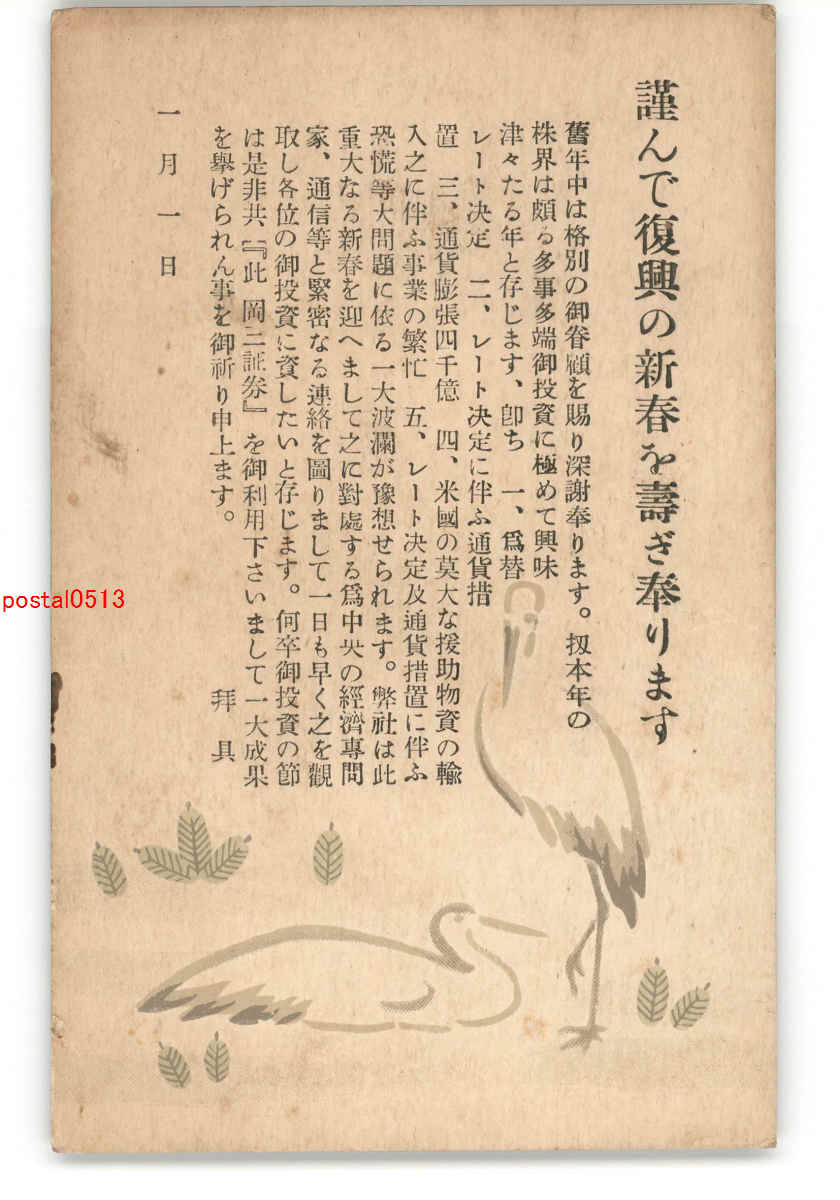 謹んで復興の新春を壽ぎ奉ります
舊年中は格別の御眷顧を賜り深謝奉ります。扨本年の
株界は頗る多事多端御投資に極めて興味
津々たる年と存じます、卽ち　一、爲替
レート決定　二、レート決定に伴ふ通貨措
置　三、通貨膨張四千億　四、米國の莫大な援助物資の輸
入之に伴ふ事業の繁忙　五、レート決定及通貨措置に伴ふ
恐慌等大問題に依る一大波瀾が豫想せられます。弊社は此
重大なる新春を迎へまして之に對處する爲中央の經濟專門
家、通信等と緊密なる連絡を圖りまして一日も早く之を觀
取し各位の御投資に資したいと存じます。何卒御投資の節
は是非共『此 岡三証券』を御利用下さいまして一大成果
を擧げられん事を御祈り申上ます。　拜具
一月一日
postal0513